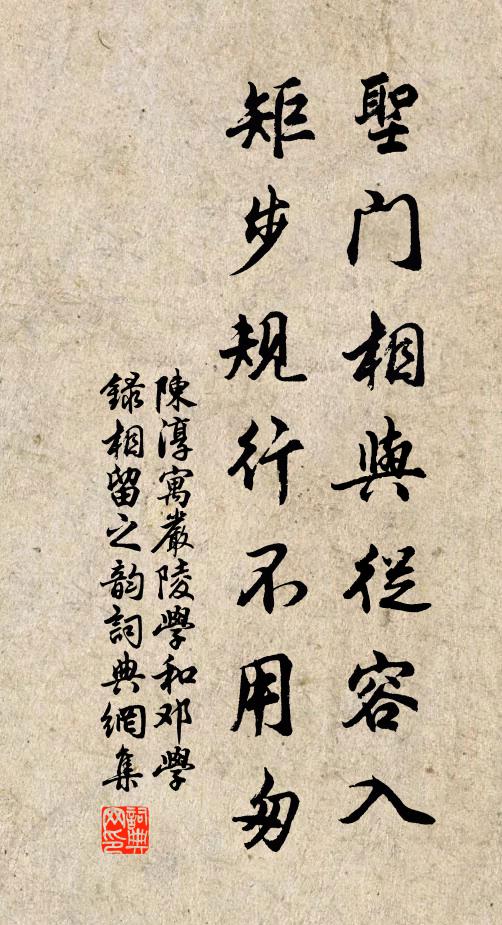 聖門相與從容入
矩步規行不用匆
陳淳寓嚴陵學和邓學
錄相留之韵詞典網集
詞典网印